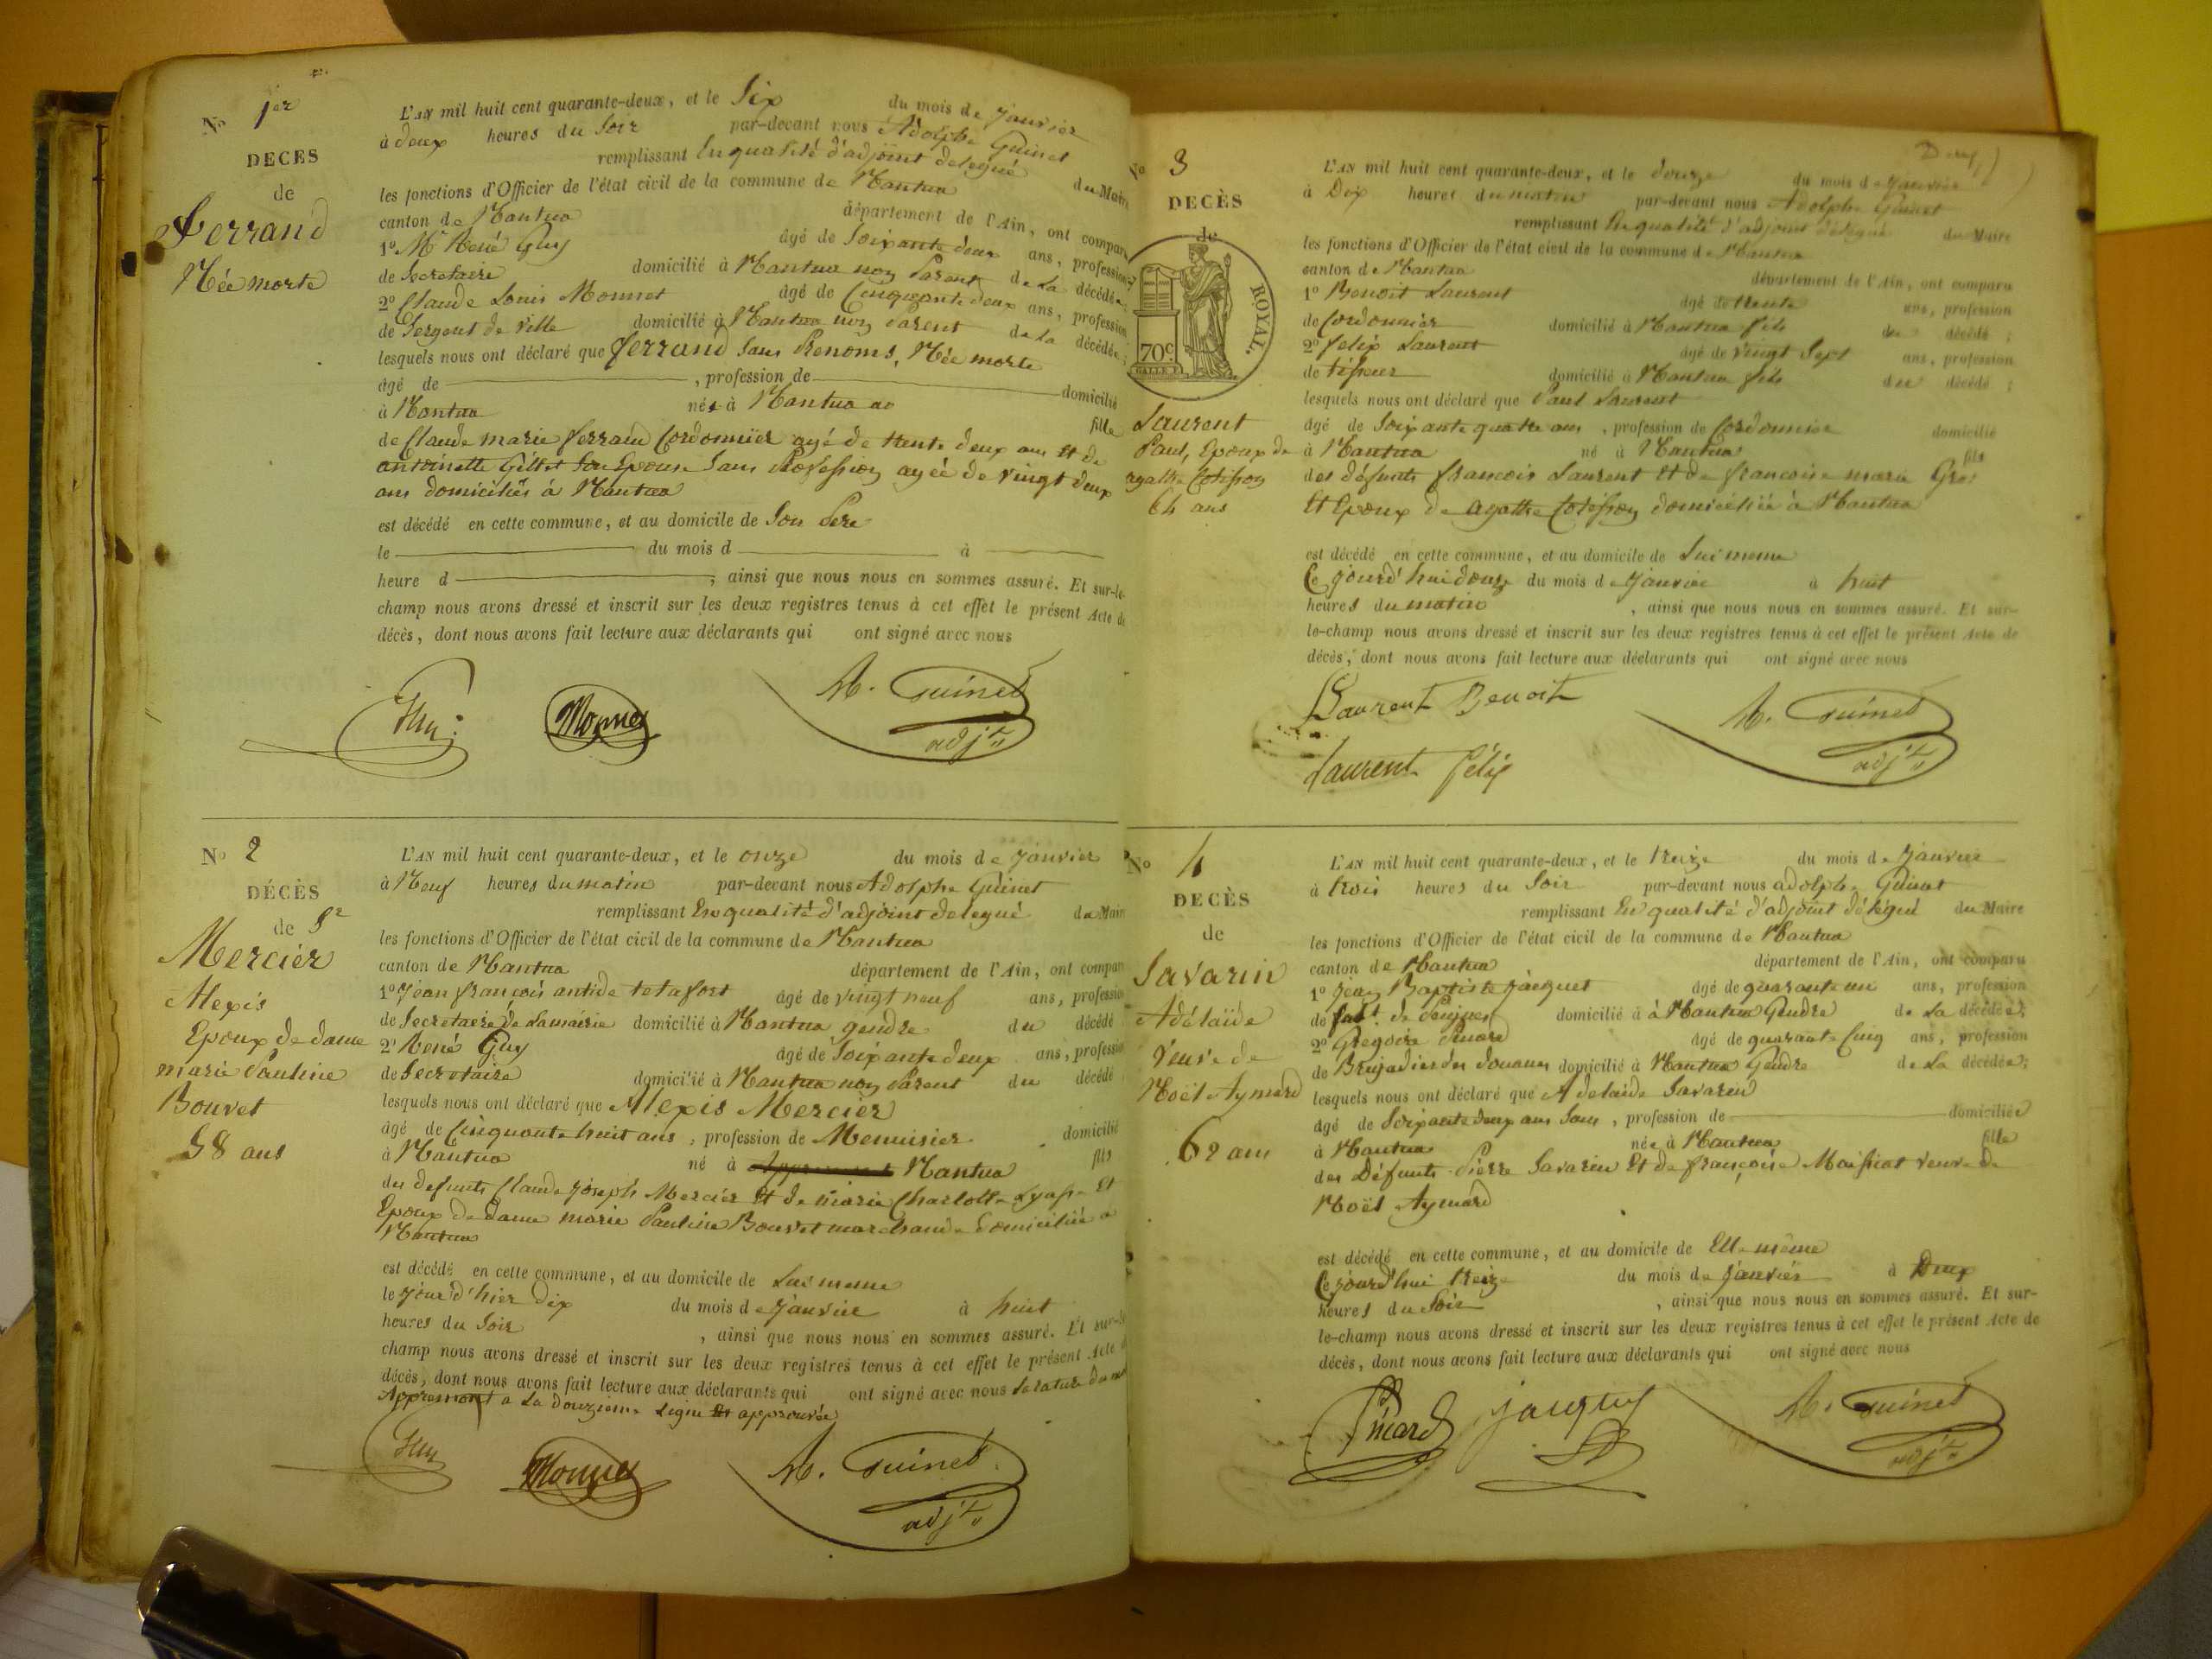 No 1er
DECES
de
Ferrand
Née morte
L'AN mil huit cent quarante-deux, et le Six du mois de Janvier
à deux heures du Soir par-devant nous Adolphe Guinet
remplissant En qualité d'adjoint delegué du Maire
les fonctions d'Officier de l'état civil de la commune de Nantua
canton de Nantua département de l'Ain, ont comparu
1o Mr René Guy âgé de Soixante deux ans, profession
de Secretaire domicilié à Nantua non Parent de La décédée,
2o Claude Louis Monnet âgé de Cinquante deux ans, profession
de Sergent de ville domicilié à Nantua non Parent de La décédée;
lesquels nous ont déclaré que ferrand Sans Prenoms, Née morte
âgé de , profession de domicilié
à Nantua née à Nantua fille
de Claude marie ferrand Cordonnier agé de trente deux ans Et de
antoinette Gillet Son Epouse Sans Profession agée de vingt deux
ans domiciliés à Nantua
est décédé en cette commune, et au domicile de Son Pere
le du mois d à
heure d ; ainsi que nous nous en sommes assuré. Et sur-le-
champ nous avons dressé et inscrit sur les deux registres tenus à cet effet le présent Acte de
décès, dont nous avons fait lecture aux déclarants qui ont signé avec nous
Guy Monnet A. Guinet
adjt
No 2
DÉCÈS
de Sr
Mercier
Alexis
Epoux de dame
marie Pauline
Bouvet
58 ans
L'AN mil huit cent quarante-deux, et le onze du mois de Janvier
à Neuf heures du matin par-devant nous Adolphe Guinet
remplissant En qualité d'adjoint delegué du Maire
les fonctions d'Officier de l'état civil de la commune de Nantua
canton de Nantua département de l'Ain, ont comparu
1o Jean françois antide tetafort âgé de vingt neuf ans, profession
de Secretaire de Lamairie domicilié à Nantua gendre du décédé
2o René Guy âgé de Soixante deux ans, profession
de Secretaire domicilié à Nantua non Parent du décédé
lesquels nous ont déclaré que Alexis Mercier
âgé de Cinquante huit ans, profession de Menuisier domicilié
à Nantua né à Apremont Nantua fils
des defunts Claude Joseph Mercier Et de marie Charlotte Et
Epoux de dame marie Pauline Bouvet marchande domiciliée a
Nantua
est décédé en cette commune, et au domicile de Lui meme
le Jour d'hier dix du mois de Janvier à huit
heures du Soir , ainsi que nous nous en sommes assuré. Et sur-le-
champ nous avons dressé et inscrit sur les deux registres tenus à cet effet le présent Acte de
décès, dont nous avons fait lecture aux déclarants qui ont signé avec nous La rature du mot
Appremont a La douzieme Ligne Est approuvée
Guy Monnet A. Guinet
adjt
Deux
No 3
DECÈS
de
ROYAL.
70c
Laurent
Paul, Epoux de
agathe Cotisson
64 ans
L'AN mil huit cent quarante-deux, et le douze du mois de Janvier
à Dix heures du matin par-devant nous Adolphe Guinet
remplissant En qualité d'adjoint délegué du Maire
les fonctions d'Officier de l'état civil de la commune de Nantua
canton de Nantua département de l'Ain, ont comparu
1o Benoit Laurent âgé de trente ans, profession
de Cordonnier domicilié à Nantua fils du décédé ;
2o felix Laurent âgé de vingt Sept ans, profession
de tisseur domicilié à Nantua fils du décédé ;
lesquels nous ont déclaré que Paul Laurent
âgé de Soixante quatre ans , profession de Cordonnier domicilié
à Nantua né à Nantua fils
des défunts françois Laurent Et de françoise marie Gros
Et Epoux de agathe Cotisson domiciliée à Nantua
est décédé en cette commune, et au domicile de Lui meme
Ce jourd'hui douze du mois de Janvier à huit
heures du matin , ainsi que nous nous en sommes assuré. Et sur-
le-champ nous avons dressé et inscrit sur les deux registres tenus à cet effet le présent Acte de
décès, dont nous avons fait lecture aux déclarants qui ont signé avec nous
Laurent Benoit A. Guinet
Laurent félix adjt
No 4
DECÈS
de
Savarin
Adélaïde
veuve de
Noël Aymard
62 ans
L'AN mil huit cent quarante-deux, et le treize du mois de Janvier
à trois heures du Soir par-devant nous adolphe Guinet
remplissant En qualité d'adjoint délégué du Maire
les fonctions d'Officier de l'état civil de la commune de Nantua
canton de Nantua département de l'Ain, ont comparu
1o Jean Baptiste Jacquet âgé de quarante un ans, profession
de fabt. de Peignes domicilié à à Nantua Gendre de La décédée;
2o Gregoire Pinard âgé de quarante Cinq ans, profession
de Brigadier des douanes domicilié à Nantua Gendre de La décédée;
lesquels nous ont déclaré que Adelaide Savarin
âgé de Soixante deux ans Sans , profession de domiciliée
à Nantua née à Nantua fille
des Défunts Pierre Savarin Et de françoise Maissiat veuve de
Noël Aymard
est décédé en cette commune, et au domicile de Elle même
Ce jourd'hui treize du mois de Janvier à Deux
heures du Soir , ainsi que nous nous en sommes assuré. Et sur-
le-champ nous avons dressé et inscrit sur les deux registres tenus à cet effet le présent Acte de
décès, dont nous avons fait lecture aux déclarants qui ont signé avec nous
Pinard Jacquet A. Guinet
adjt